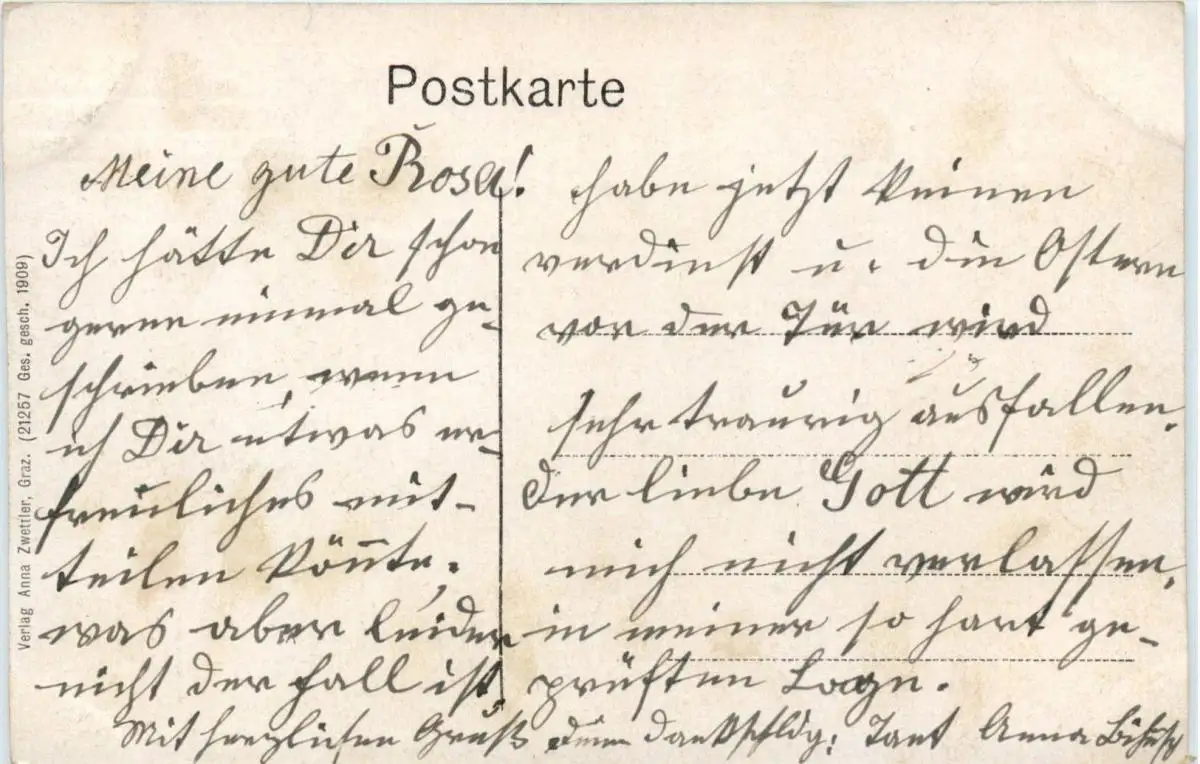 Postkarte
Meine gute Rosa!
Ich hätte Dir schon
gerne einmal ge-
schrieben, wenn
ich Dir etwas er-
freuliches mit-
teilen könnte.
was aber leider
nicht der fall ist,
habe jetzt keinen
verdinst u. die Ostern
vor der Tür wird
sehr traurig ausfallen.
der liebe Gott wird
mich nicht verlassen,
in meiner so hart ge-
prüften Lage.
Mit herzlichen Gruß deine Tant Anna
Verlag Anna Zwettler, Graz. (21257 Ges. gesch. 1909)